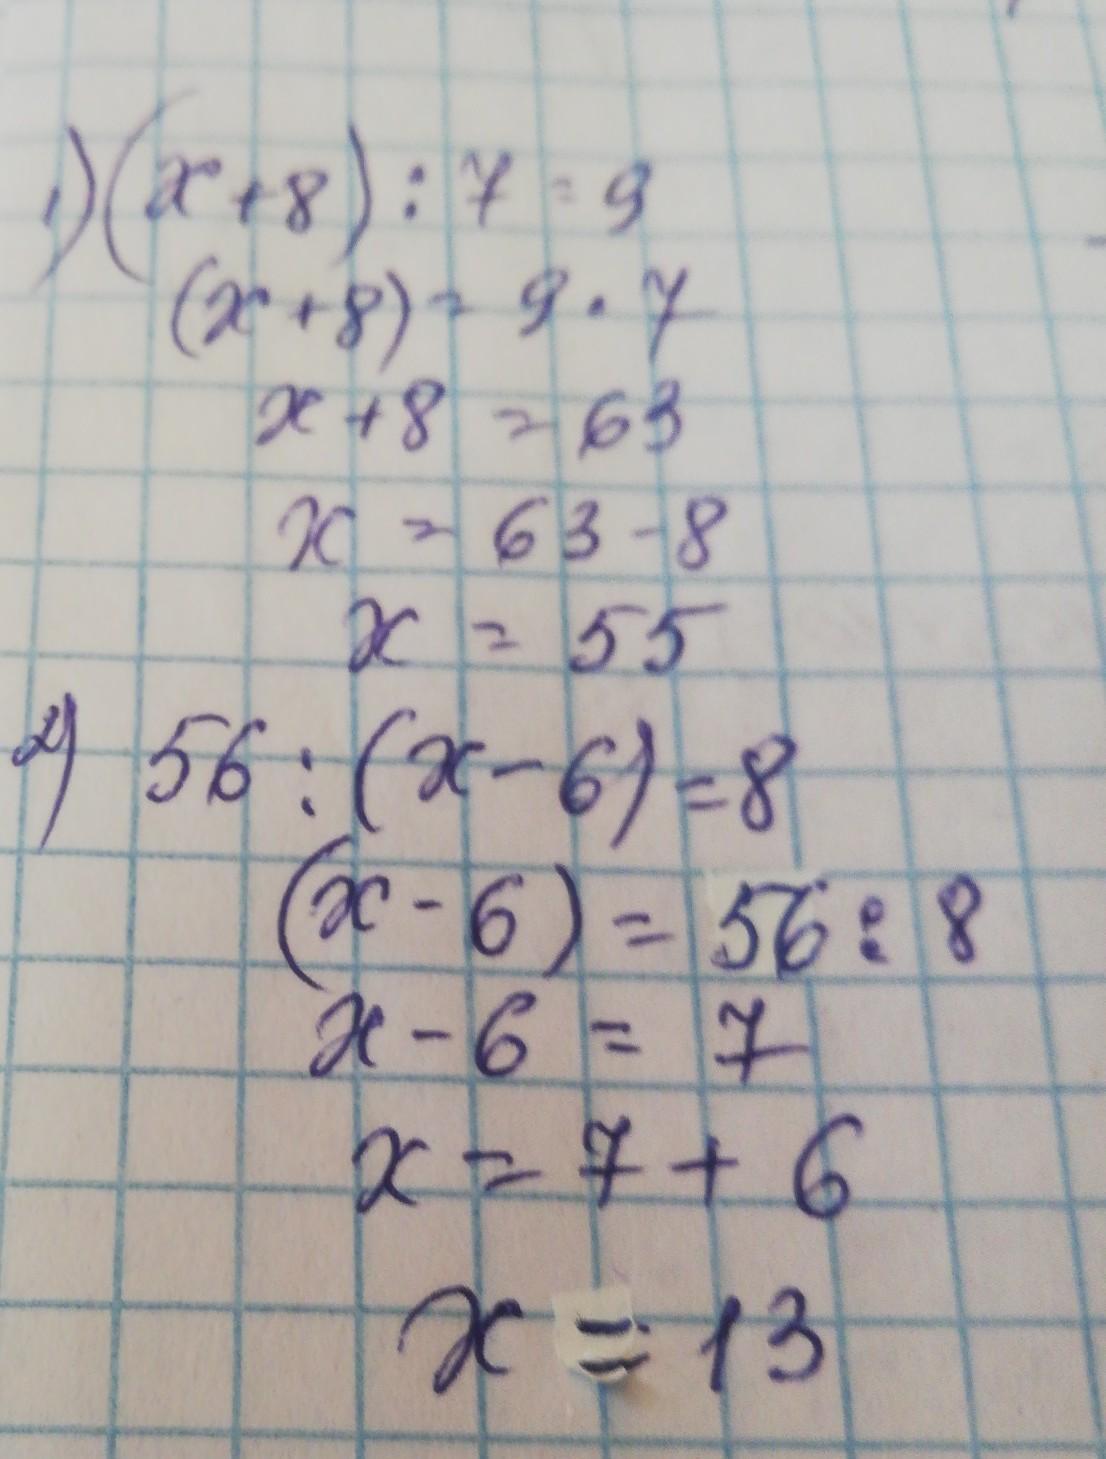 1) (x+8) : 7 = 9
(x+8) = 9 · 7
x+8 = 63
x = 63-8
x = 55
2) 56 : (x-6) = 8
(x-6) = 56 : 8
x-6 = 7
x = 7 + 6
x = 13